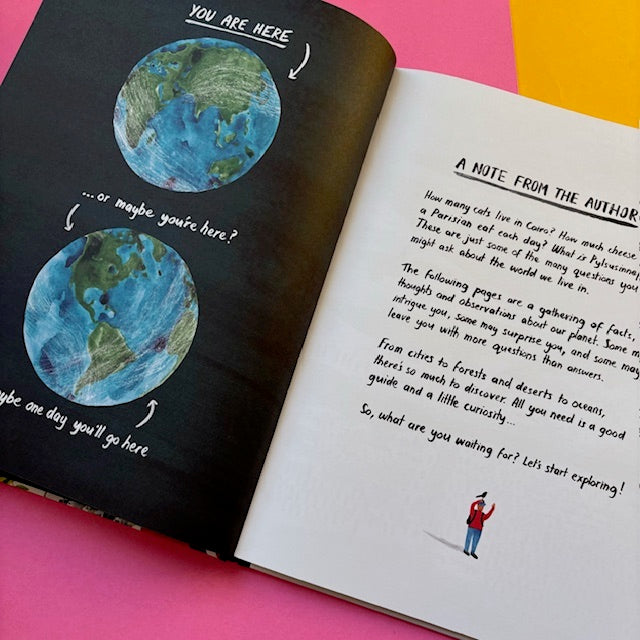 YOU ARE HERE
...or maybe you're here?
one day you'll go here
A NOTE FROM THE AUTHOR
How many cats live in Cairo? How much cheese
a Parisian eat each day? What is
These are just some of the many questions you
might ask about the world we live in.
The following pages are a gathering of facts,
thoughts and observations about our planet. Some
intrigue you, some may surprise you, and some may
leave you with more questions than answers.
From cities to forests and deserts to oceans,
there's so much to discover. All you need is a good
guide and a little curiosity...
So, what are you waiting for? Let's start exploring!